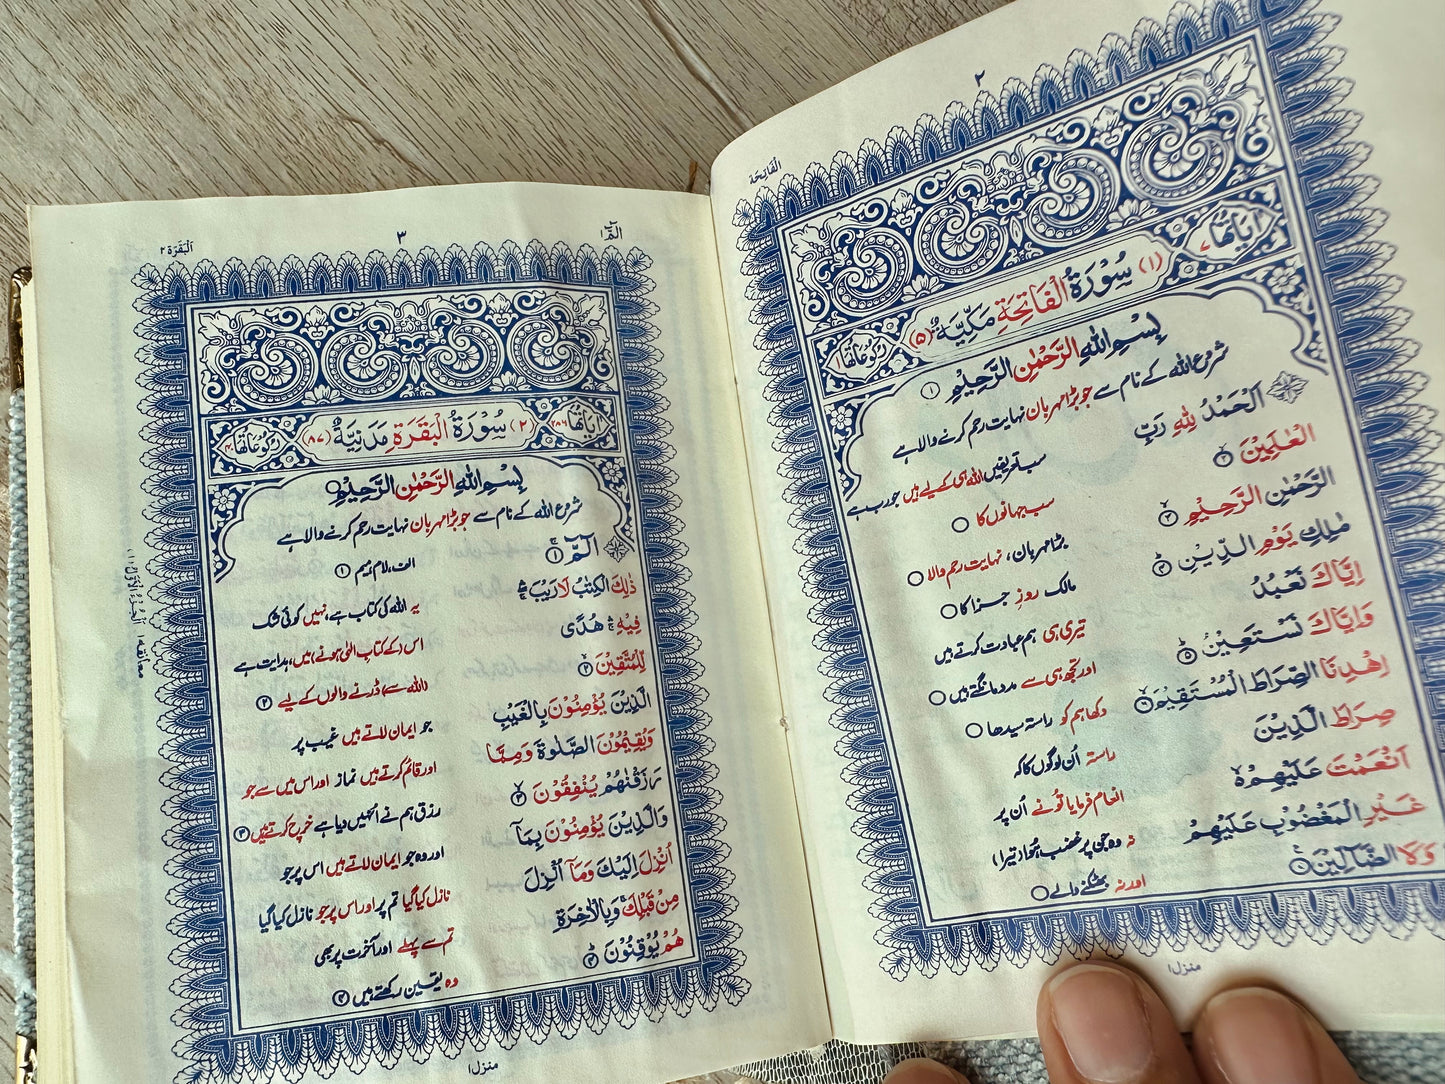 ٢
الْفَاتِحَة
اٰيَاتُهَا ٧
(١) سُوْرَةُ الْفَاتِحَةِ مَكِّيَّةٌ (٥)
رُكُوْعَاتُهَا
بِسْمِ اللّٰهِ الرَّحْمٰنِ الرَّحِيْمِ ١
شروع اللہ کے نام سے جو بڑا مہربان نہایت رحم کرنے والا ہے
اَلْحَمْدُ لِلّٰهِ رَبِّ
سب تعریفیں اللہ ہی کے لیے ہیں جو رب ہے
الْعٰلَمِيْنَ ٢
سب جہانوں کا
الرَّحْمٰنِ الرَّحِيْمِ ٣
بڑا مہربان، نہایت رحم والا
مٰلِكِ يَوْمِ الدِّيْنِ ٤
مالک روزِ جزا کا
اِيَّاكَ نَعْبُدُ
تیری ہی ہم عبادت کرتے ہیں
وَاِيَّاكَ نَسْتَعِيْنُ ٥
اور تجھ ہی سے مدد مانگتے ہیں
اِهْدِنَا الصِّرَاطَ الْمُسْتَقِيْمَ ٦
دکھا ہم کو راستہ سیدھا
صِرَاطَ الَّذِيْنَ
راستہ اُن لوگوں کا کہ
اَنْعَمْتَ عَلَيْهِمْ
انعام فرمایا تُو نے اُن پر
غَيْرِ الْمَغْضُوْبِ عَلَيْهِمْ
نہ وہ جن پر غضب ہوا (تیرا)
وَلَا الضَّآلِّيْنَ
اور نہ بھٹکنے والے
منزل ١
الٓمّٓ ١
٣
اَلْبَقَرَة ٢
اٰيَاتُهَا ٢٨٦
(٢) سُوْرَةُ الْبَقَرَةِ مَدَنِيَّةٌ (٨٧)
رُكُوْعَاتُهَا ٤٠
بِسْمِ اللّٰهِ الرَّحْمٰنِ الرَّحِيْمِ
شروع اللہ کے نام سے جو بڑا مہربان نہایت رحم کرنے والا ہے
الٓمّٓ ١
الف، لام، میم ١
ذٰلِكَ الْكِتٰبُ لَا رَيْبَ
یہ اللہ کی کتاب ہے، نہیں کوئی شک
فِيْهِ هُدًى
اس (کے کتابِ الٰہی ہونے) میں، ہدایت ہے
لِّلْمُتَّقِيْنَ ٢
(اللہ سے) ڈرنے والوں کے لیے ٢
الَّذِيْنَ يُؤْمِنُوْنَ بِالْغَيْبِ
جو ایمان لاتے ہیں غیب پر
وَيُقِيْمُوْنَ الصَّلٰوةَ وَمِمَّا
اور قائم کرتے ہیں نماز اور اس میں سے جو
رَزَقْنٰهُمْ يُنْفِقُوْنَ ٣
رزق ہم نے انہیں دیا ہے خرچ کرتے ہیں ٣
وَالَّذِيْنَ يُؤْمِنُوْنَ بِمَآ
اور وہ جو ایمان لاتے ہیں اس پر جو
اُنْزِلَ اِلَيْكَ وَمَآ اُنْزِلَ
نازل کیا گیا تم پر اور اس پر جو نازل کیا گیا
مِنْ قَبْلِكَ وَبِالْاٰخِرَةِ
تم سے پہلے اور آخرت پر بھی
هُمْ يُوْقِنُوْنَ ٤
وہ یقین رکھتے ہیں ٤
منزل ١
معانقة ١